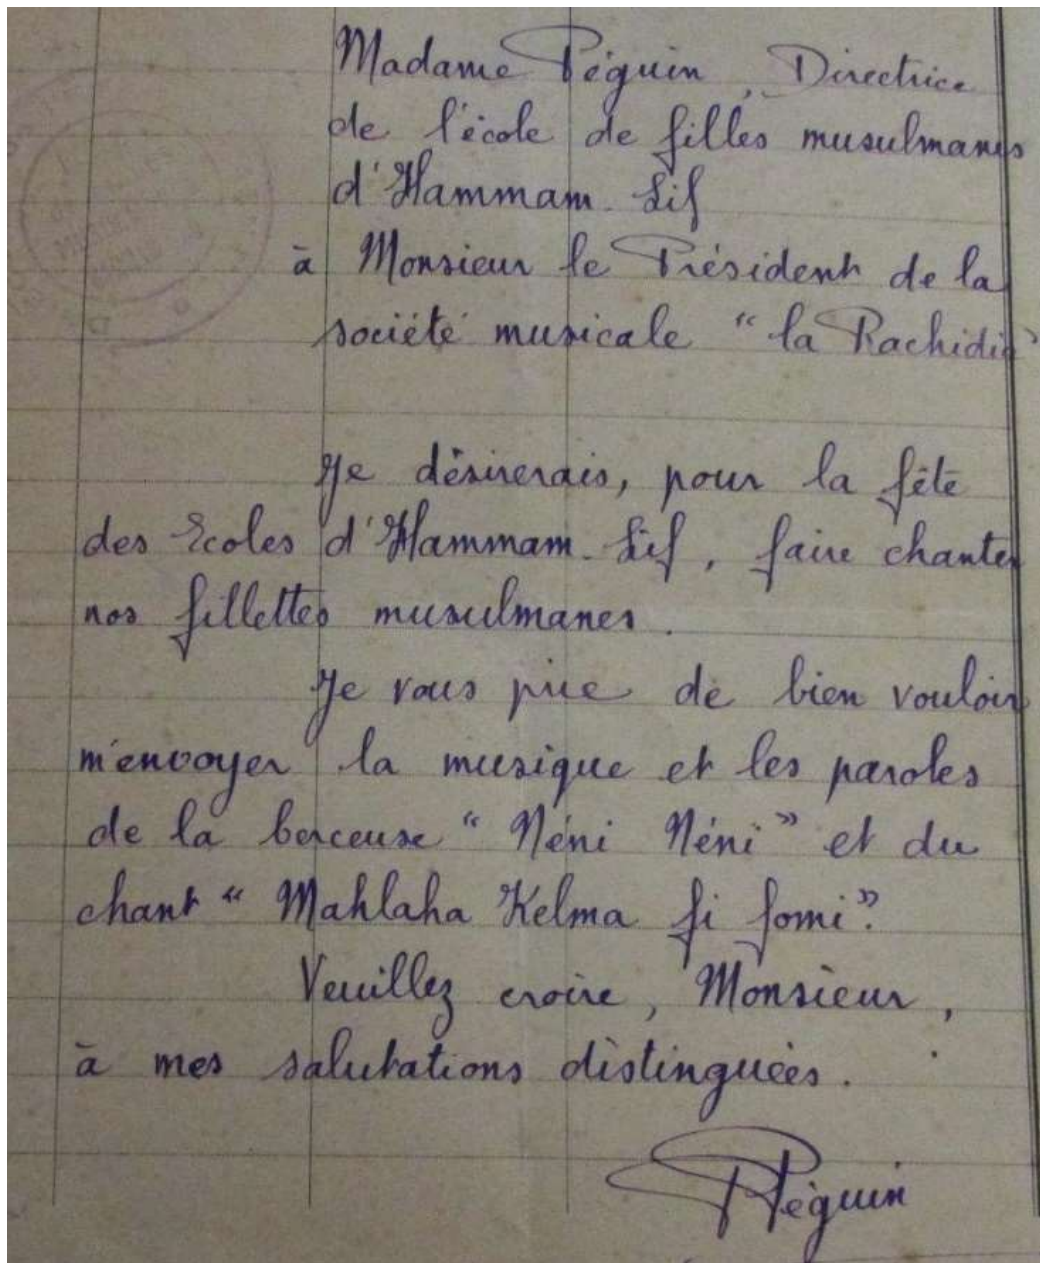 Madame Péguin, Directrice
de l'école de filles musulmanes
d'Hammam-Lif
à Monsieur le Président de la
société musicale "la Rachidia"
Je désirerais, pour la fête
des Ecoles d'Hammam-Lif, faire chanter
nos fillettes musulmanes.
Je vous prie de bien vouloir
m'envoyer la musique et les paroles
de la berceuse "Néni Néni" et du
chant "Mahlaha Kelma fi fomi".
Veuillez croire, Monsieur,
à mes salutations distinguées.
Péguin